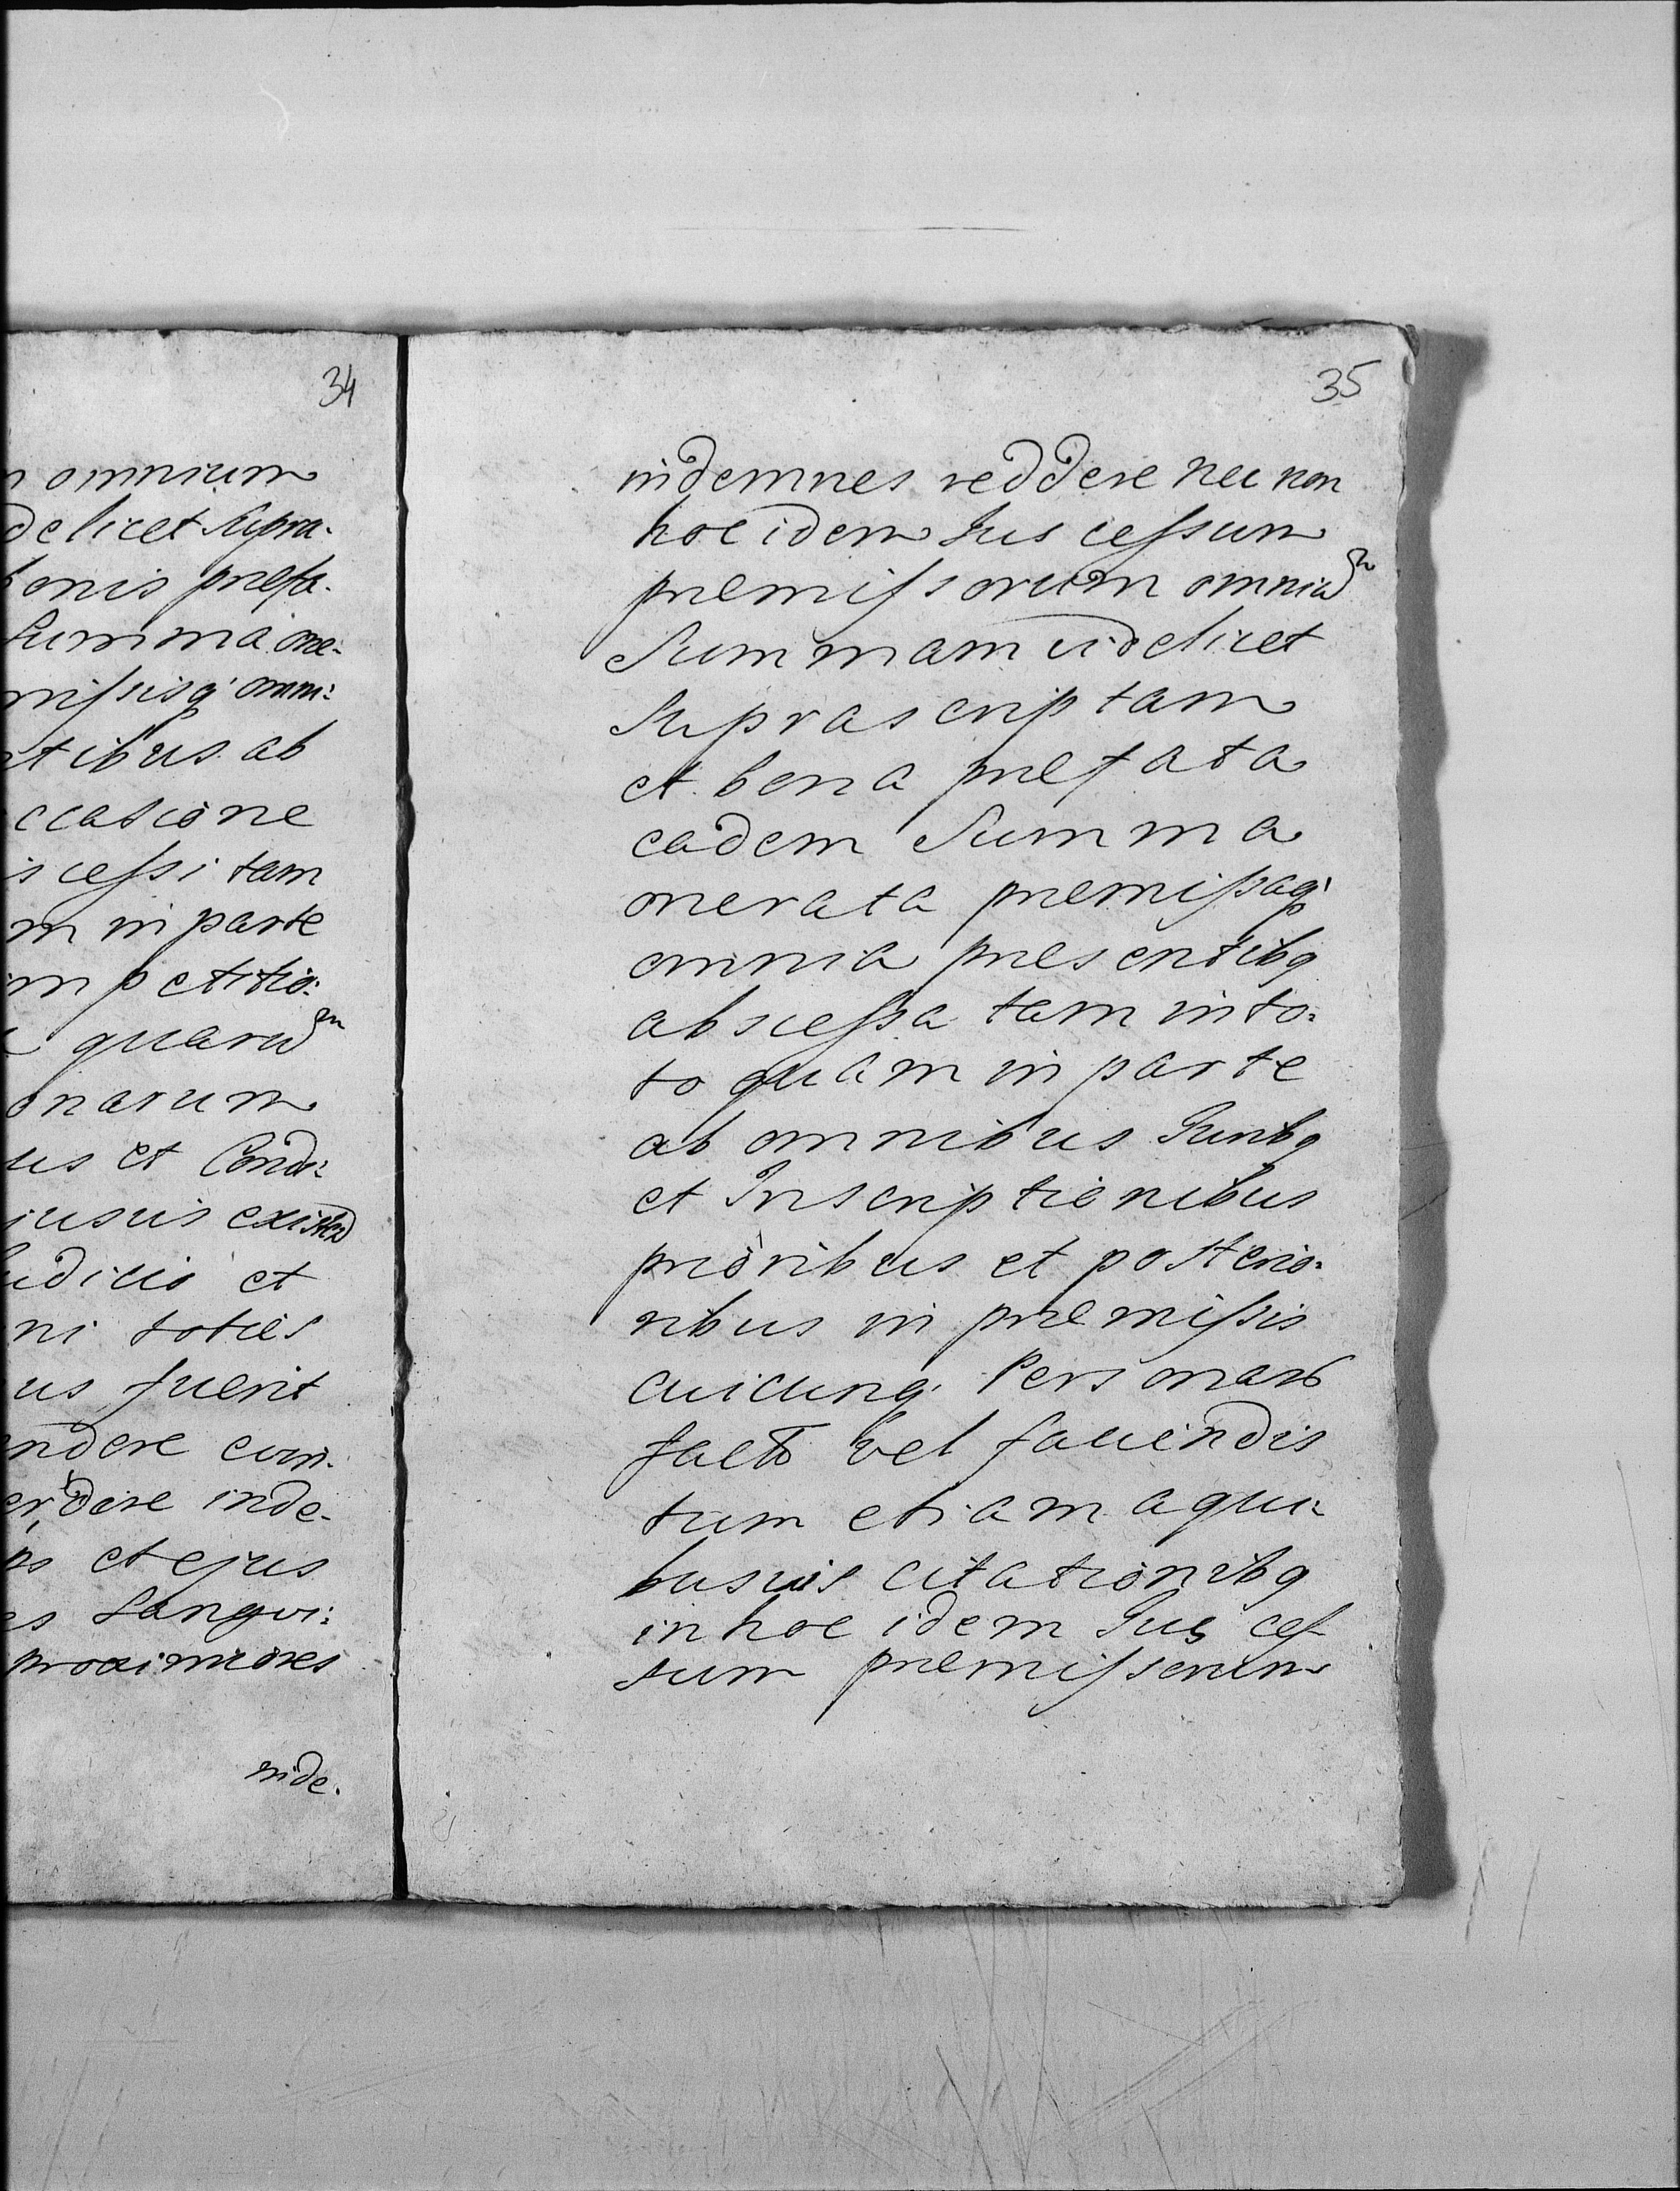 34
omnium
delicet supra-
bonis prefa-
Summa one-
missisq omni-
tibus ab
ccasione
s cessi tam
m in parte
m petitio-
quarum
onarum
us et Condi-
iusuis existen
udicio et
ni toties
us fuerit
ndere evin-
dere inde-
os et ejus
es Sangvi-
proximiores
inde-
35
indemnes reddere nec non
hoc idem Jus cessum
premissorum omnium
Summam videlicet
Suprascriptam
et bona prefata
eadem Summa
onerata premissaq
omnia presentibq
abscessa tam in to-
to quam in parte
ab omnibus Juribq
et Inscriptionibus
prioribus et posterio-
ribus in premissis
cuicunq Personarum
factis vel faciendis
tum etiam a qui-
busvis citationibq
in hoc idem Jus ces-
sum premissorum